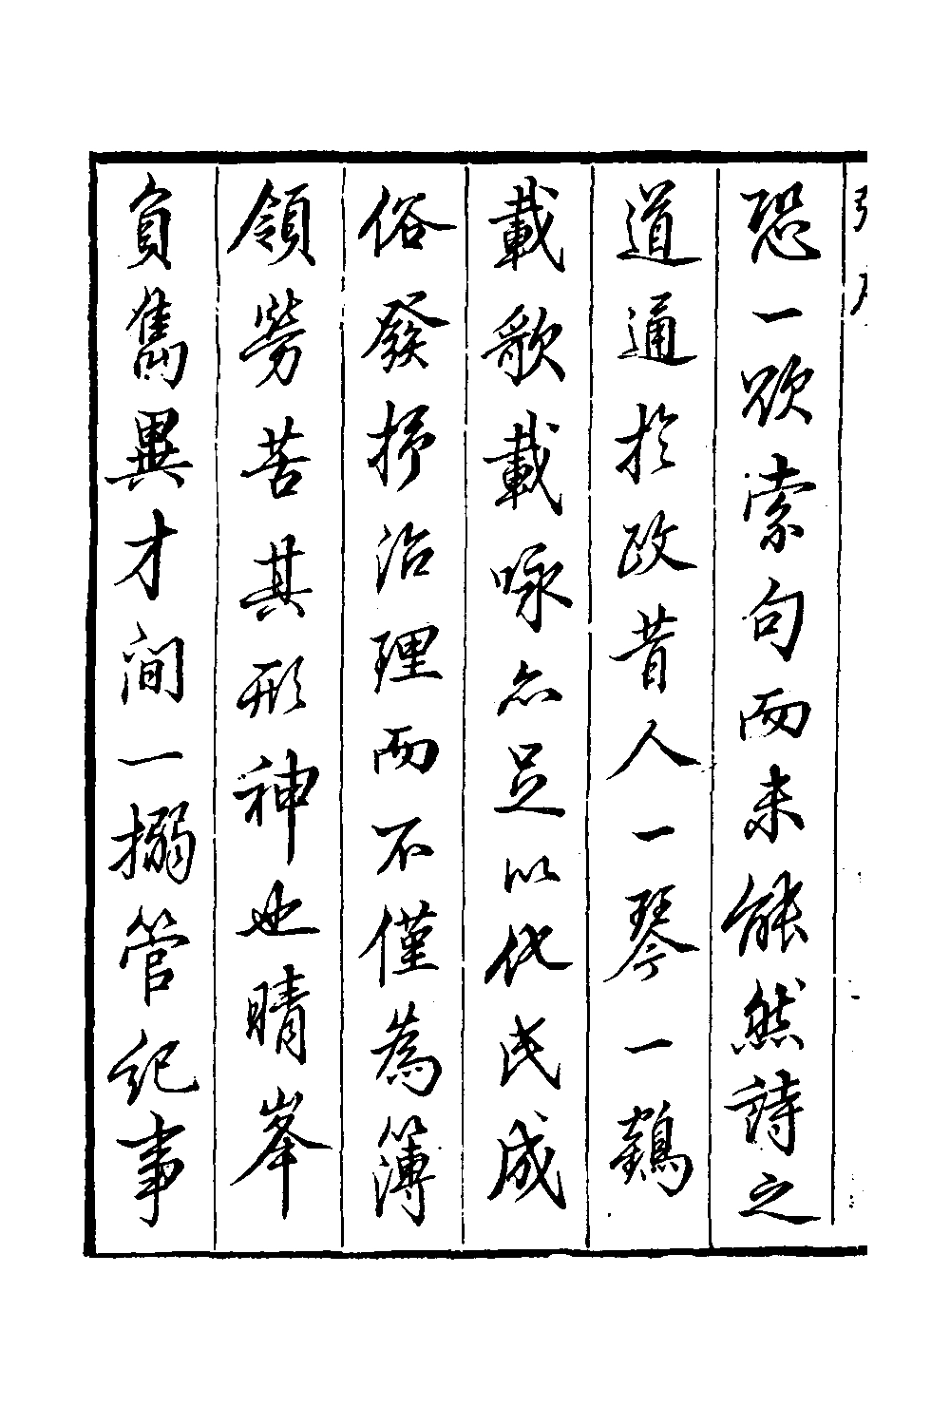 恐一欲索句而未能然詩之
道通於政昔人一琴一鶴
載歌載詠亦足以代民成
俗發抒治理而不僅為簿
領勞苦其形神也晴峯
負雋異才間一搦管紀事